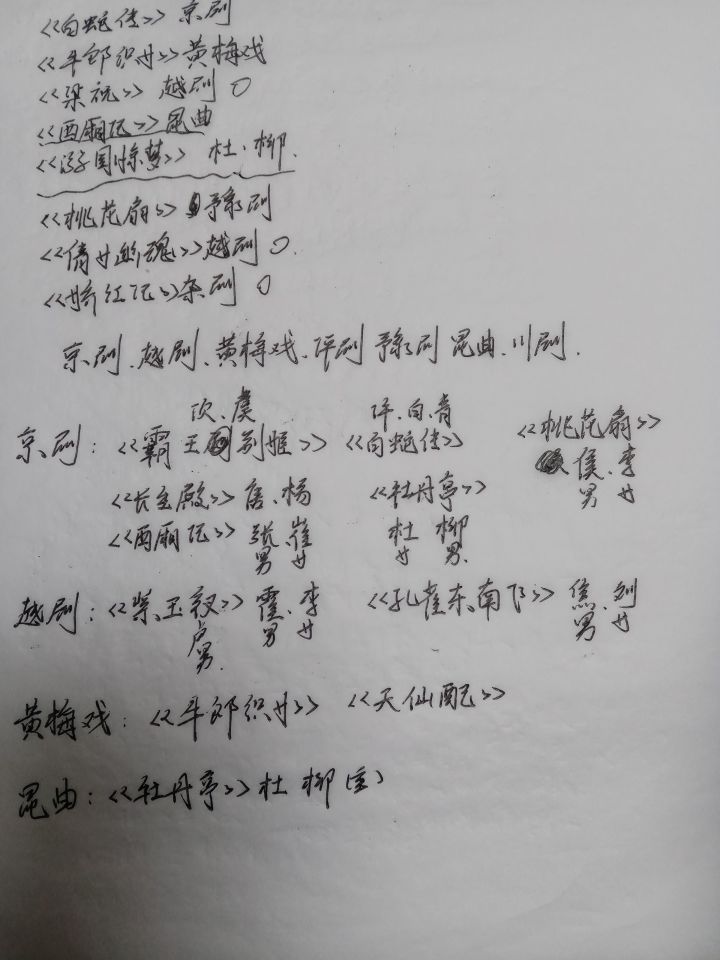 <<白蛇传>> 京剧
<<牛郎织女>>黄梅戏
<<梁祝>> 越剧 0
<<西厢记>>昆曲
<<游园惊梦>> 杜.柳.
<<桃花扇>> 豫剧
<<倩女幽魂>>越剧 0
<<娇红记>>杂剧 0
京剧.越剧.黄梅戏.评剧 豫剧 昆曲.川剧.
项.虞 许.白.青
京剧:<<霸王别姬>> <<白蛇传>> <<桃花扇>>
侯.李
男 女
<<长生殿>>唐.杨 <<牡丹亭>>
<<西厢记>>张 崔 杜 柳
男 女 女 男.
越剧:<<紫玉钗>>霍.李 <<孔雀东南飞>> 焦.刘
卢 男 女 男 女
男.
黄梅戏:<<牛郎织女>> <<天仙配>>
昆曲:<<牡丹亭>>杜 柳